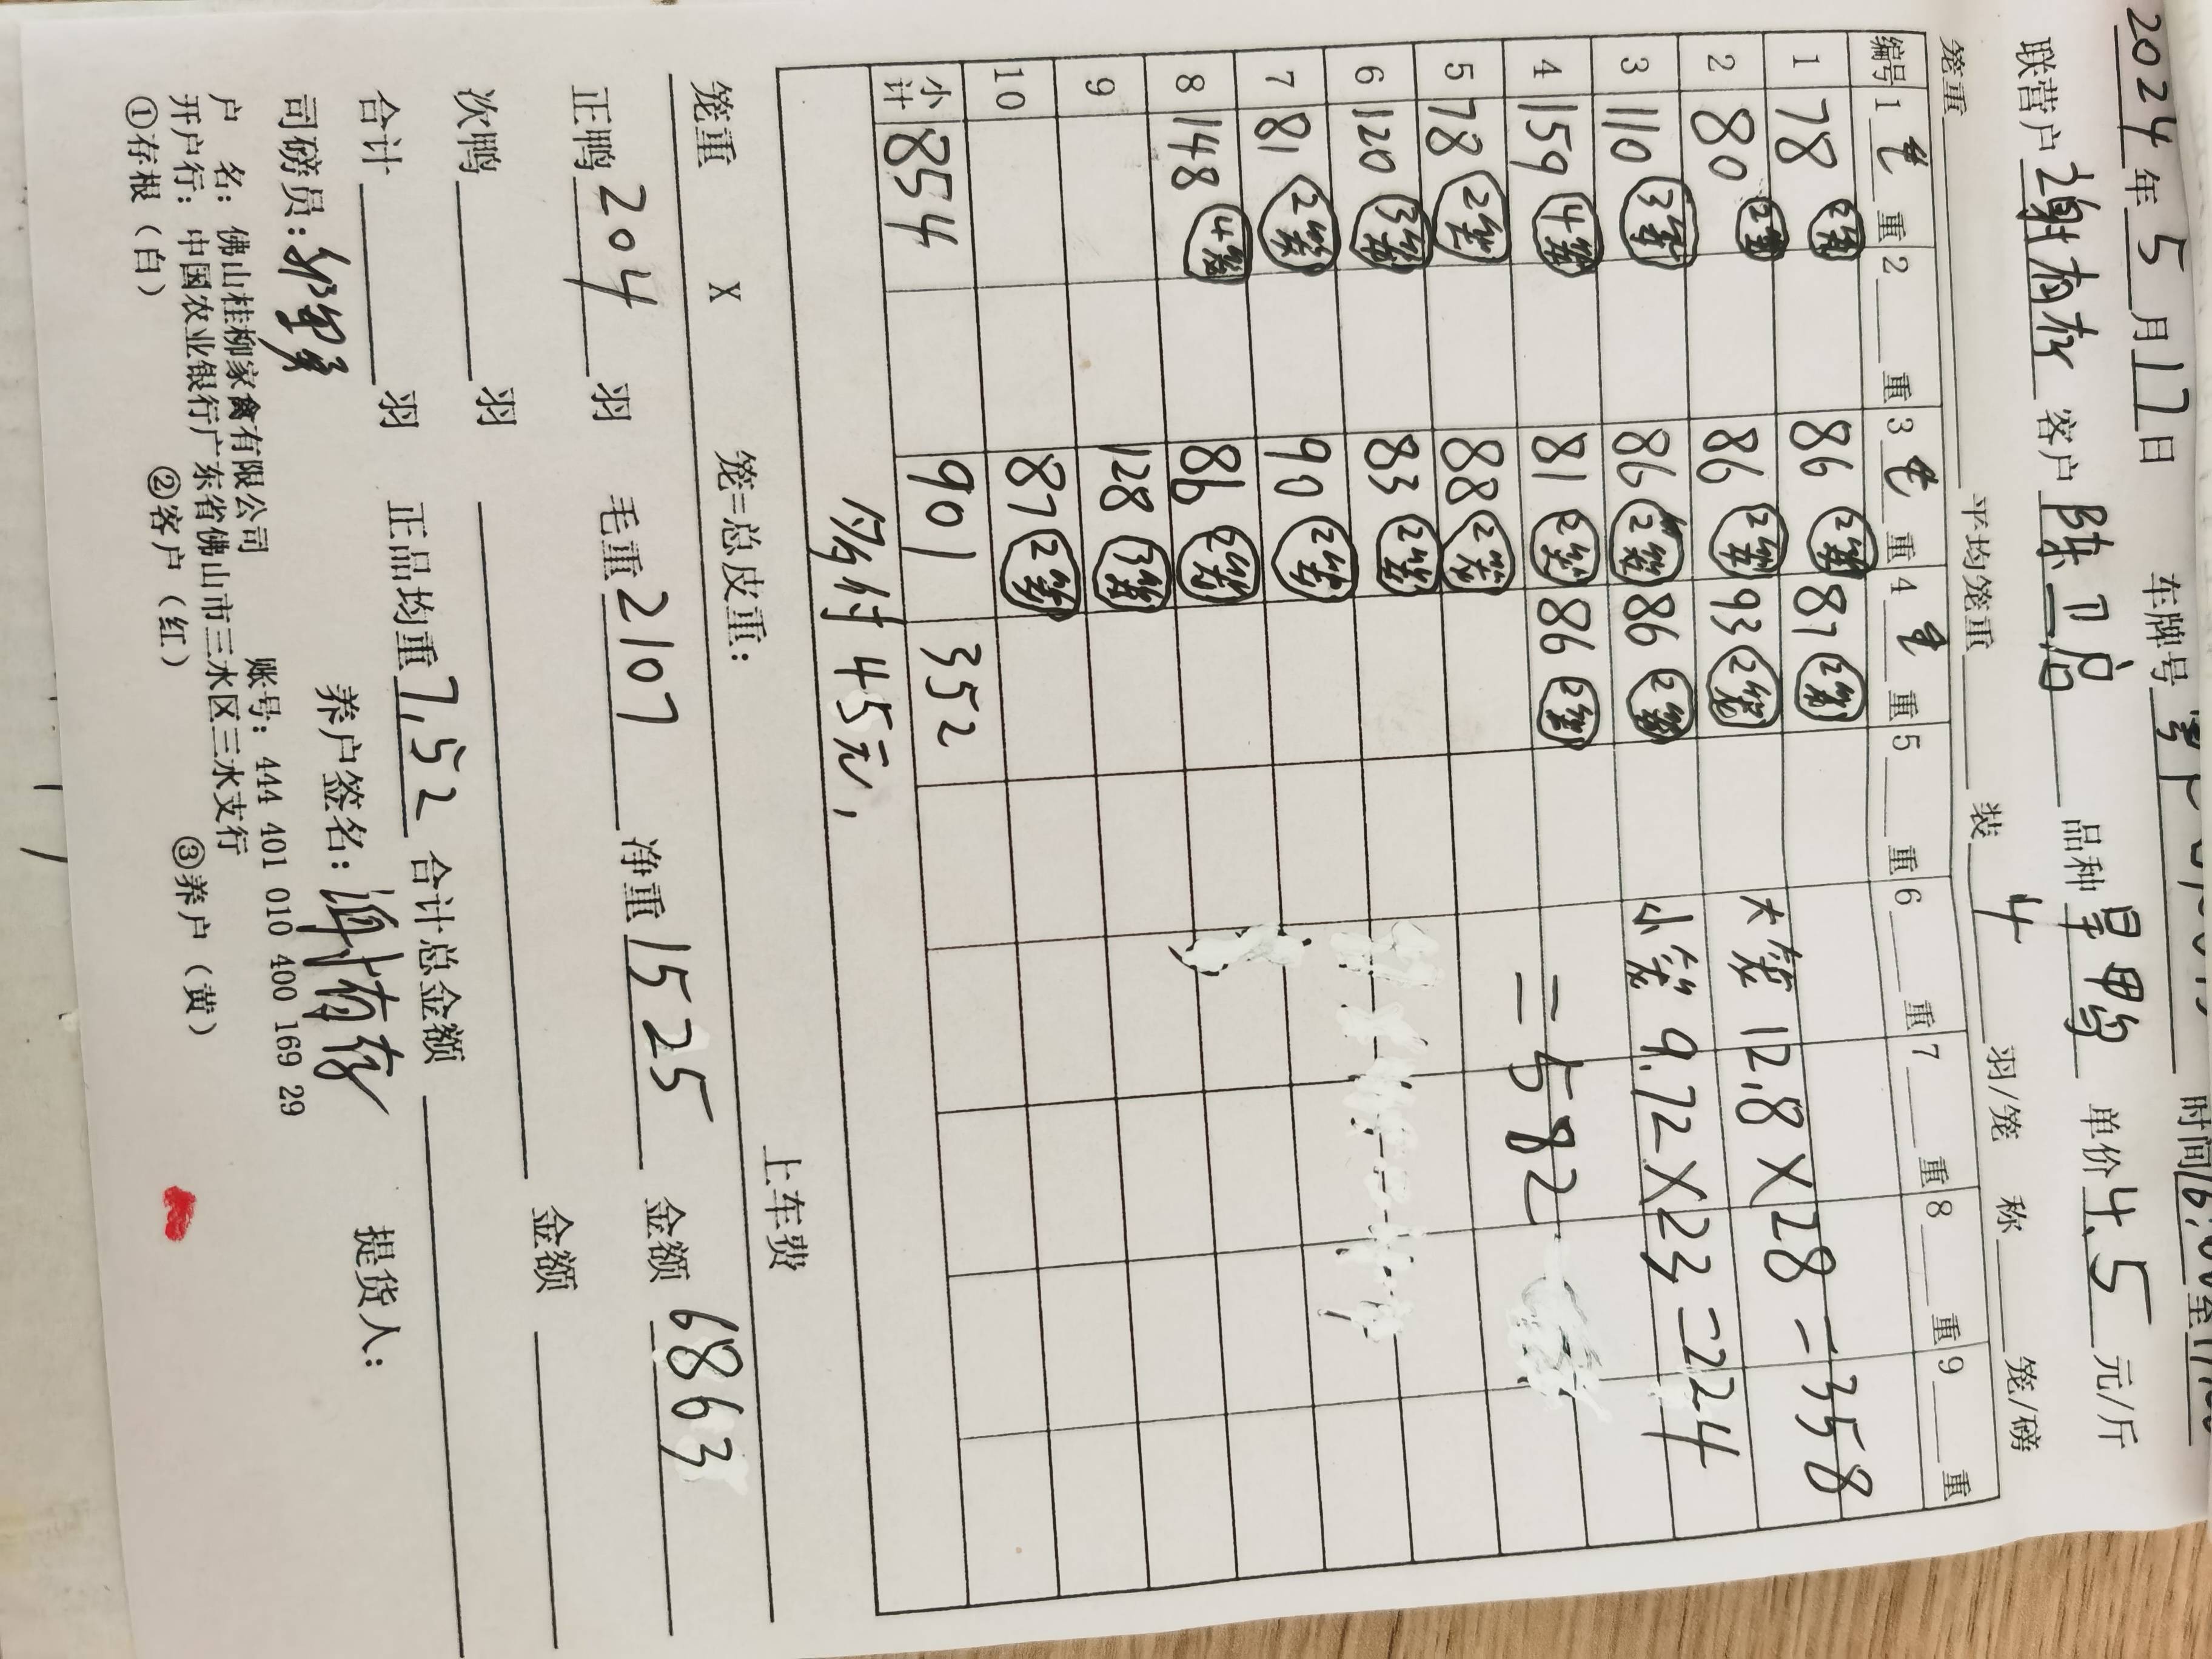 2024年5月17日 车牌号 时间16:00至
联营户谢有权 客户陈卫启 品种 单价4.5元/斤
笼重 平均笼重 装4羽/笼 称 笼/磅
编号 1毛重 2 重 3毛重 4毛重 5 重 6 重 7 重 8 重 9 重
1 78 2笼 86 2笼 87 2笼 大笼 12.8X28=358
2 80 2笼 86 2笼 93 2笼 小笼 9.72X23=224
3 110 3笼 86 2笼 86 2笼
4 159 4笼 81 2笼 86 2笼 =582
5 78 2笼 88 2笼
6 120 3笼 83 2笼
7 81 2笼 90 2笼
8 148 4笼 86 2笼
9 128 3笼
10 87 2笼
小计 854 901 352
付 45元,
笼重 X 笼=总皮重: 上车费
正鸭204羽 毛重2107 净重1525 金额6863
次鸭 羽 金额
合计 羽 正品均重7.52 合计总金额
司磅员: 养户签名: 提货人:
户 名: 佛山桂柳家禽有限公司 账号: 444 401 010 400 169 29
开户行: 中国农业银行广东省佛山市三水区三水支行
①存根(白) ②客户(红) ③养户(黄)